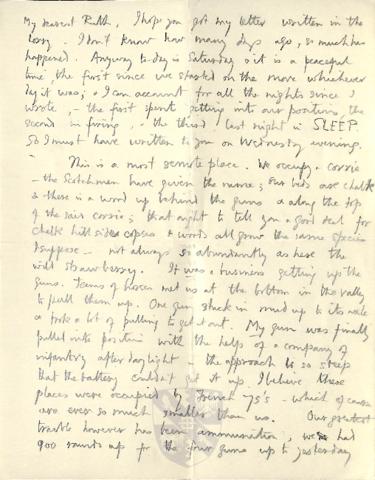 My dearest Ruth, I hope you got my letter written in the
lorry. I don't know how many days ago, so much has
happened. Anyway to-day is Saturday & it is a peaceful
time, the first since we started on the move whichever
day it was; & I can account for all the nights since I
wrote, - the first spent getting into our position, the
second in firing, - the third, last night in SLEEP.
So I must have written to you on Wednesday evening.
This is a most remote place. We occupy a corrie
- the Scotchmen have given the name; our beds are chalk
& there is a wood up behind the guns & along the top
of the corrie; that ought to tell you a good deal for
chalk hill sides copses & woods all grow the same species
I suppose - not always so abundantly as here the
wild strawberry. It was a business getting up the
guns. Teams of horses met us at the bottom in the valley
to pull them up. One gun stuck in mud up to its axle
& took a lot of pulling to get out. My gun was finally
pulled into position with the help of a company of
infantry after daylight - the approach is so steep
that the battery couldn't get it up. I believe these
places were occupied by French 75's - which of course
are ever so much smaller than us. Our greatest
trouble however has been ammunition, we had
900 rounds up for the four guns up to yesterday